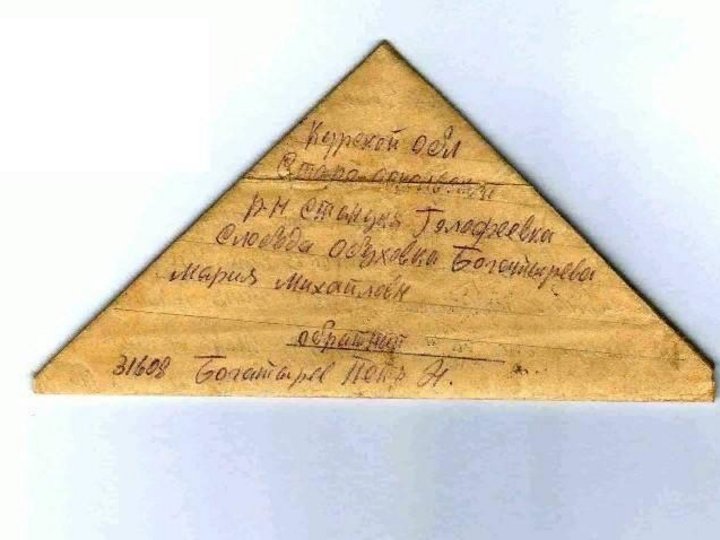 Курской обл
Старо-оскольский
р-н станция Голофеевка
слобода Обуховка Богатырева
Мария Михайловн
обратный
31608 Богатырев Петр И.